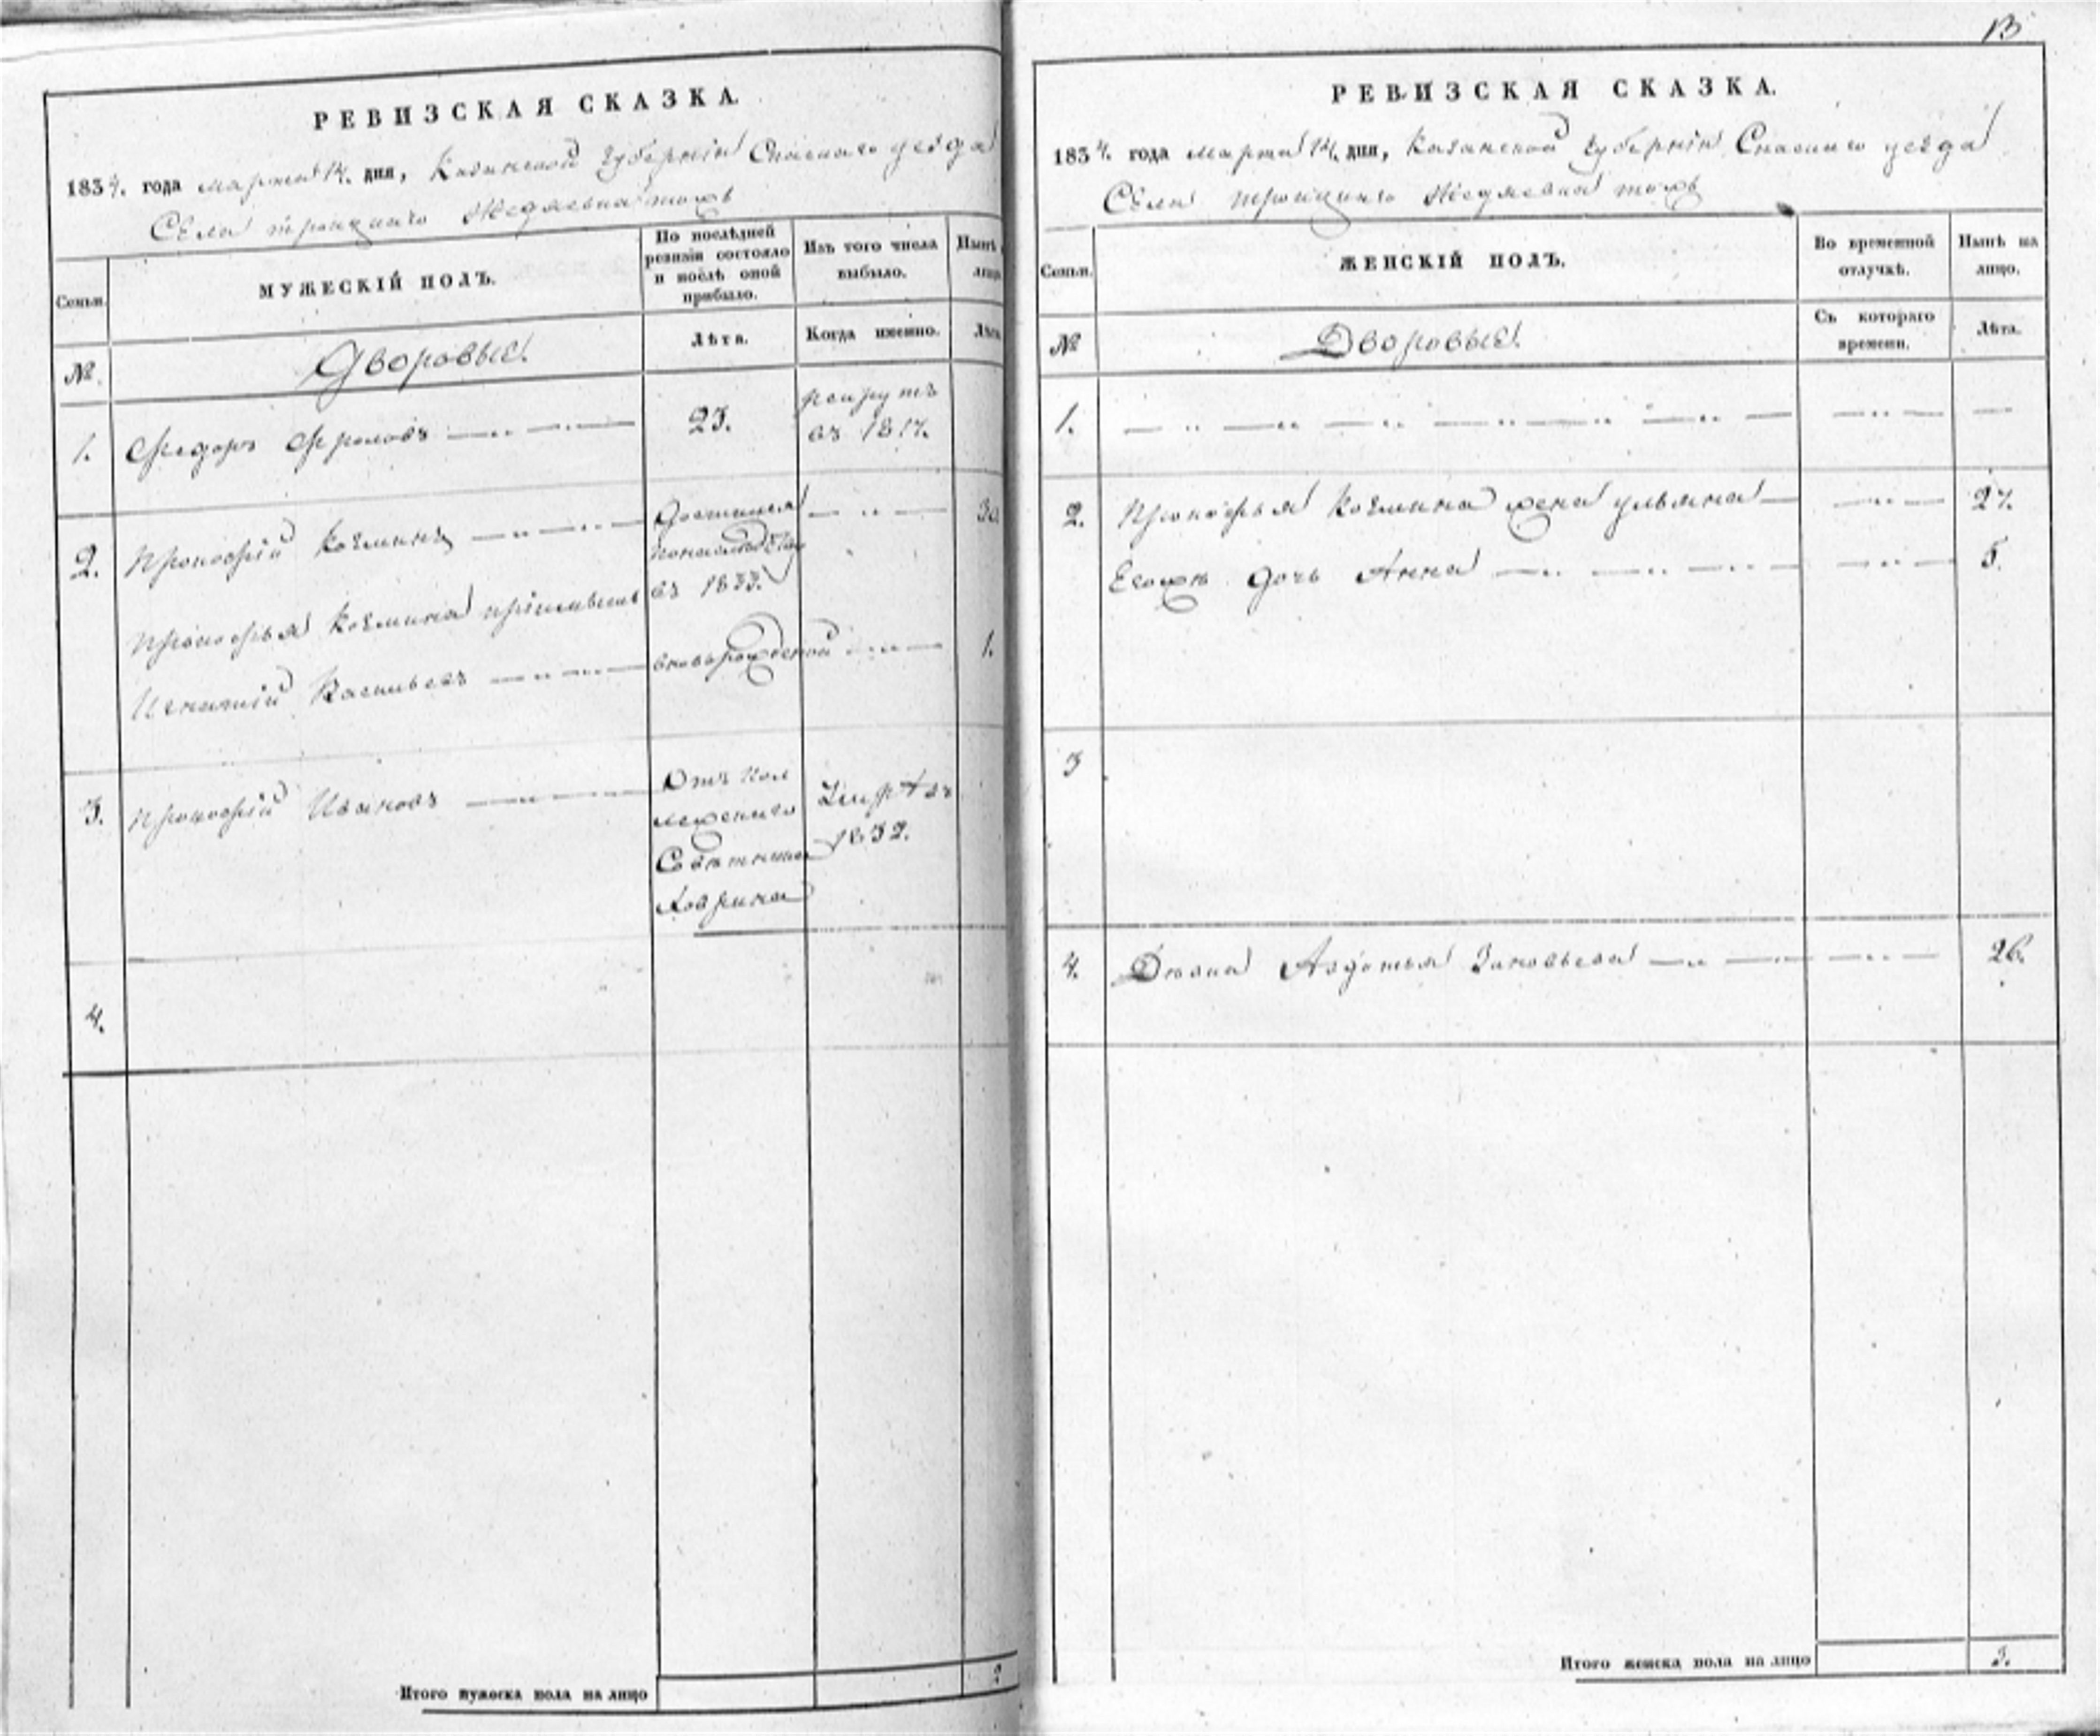 РЕВИЗСКАЯ СКАЗКА.
1834. года марта 14. дня, Казанской губернiи Спаскаго уезда
Села троицкаго тожъ
Семьи.
МУЖЕСКIЙ ПОЛЪ.
По послѣдней ревизiи состояло и послѣ оной прибыло.
Изъ того числа выбыло.
Нынѣ лицо
№.
Дворовые.
Лѣта.
Когда именно.
Лѣта
1.
Федоръ Фроловъ
23.
рекрутъ
въ 1817.
2.
Прокофiй Козминъ
Достался
30.
въ 1833.
Прокофья Козмина прiимышъ
Игнатiй Васильевъ
вновьрожденой
1.
3.
Прокофiй Ивановъ
Отъ
1832.
Советника
4.
Итого мужеска пола на лицо
2
13
РЕВИЗСКАЯ СКАЗКА.
1834. года марта 14. дня, Казанской губернiи Спаскаго уезда
Села троицкаго тожъ
Семьи.
ЖЕНСКIЙ ПОЛЪ.
Во временной отлучкѣ.
Нынѣ на лицо.
№
Дворовые.
Съ котораго времени.
Лѣта.
1.
2.
Прокофья Козмина жена ульяна
27.
Егожъ дочь Анна
5.
3
4.
Девка Авдотья Зиновьева
26.
Итого женска пола на лицо
3.